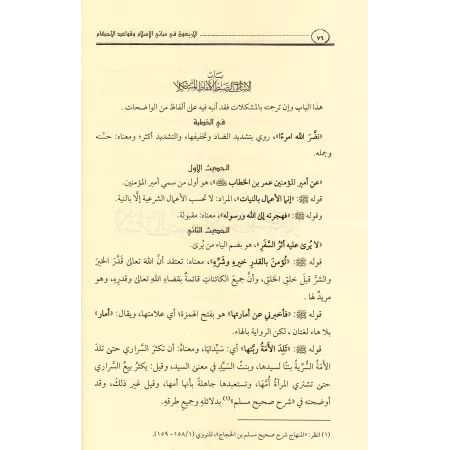 ٧٩
الأربعون في مباني الإسلام وقواعد الأحكام
باب
الإشارات إلى ضبط الألفاظ المشكلات
هذا الباب وإن ترجمته بالمشكلات فقد أنبه فيه على ألفاظ من الواضحات .
في الخطبة
«نضَّرَ الله امرءًا»، روي بتشديد الضاد وتخفيفها، والتشديد أكثر؛ ومعناه: حسَّنه
وجمله.
الحديث الأول
«عن أمير المؤمنين عمر بن الخطاب ﷺ»، هو أول من سمي أمير المؤمنين.
قوله ﷺ: «إنما الأعمال بالنيات»، المراد: لا تحسب الأعمال الشرعية إلَّا بالنية.
وقوله ﷺ: «فهجرته إلى الله ورسوله»، معناه: مقبولة.
الحديث الثاني
«لا يُرىٰ عليه أثرُ السَّفَرِ»، هو بضم الياء من يُرىٰ.
قوله ﷺ: «تُؤمنَ بالقدرِ خيرِهِ وشَرِّهِ»، معناه: تعتقد أنَّ اللهَ تعالىٰ قدَّرَ الخيرَ
والشرَّ قبلَ خلقِ الخلقِ، وأنَّ جميعَ الكائناتِ قائمةٌ بقضاءِ اللهِ تعالىٰ وقدرِهِ، وهو
مريدٌ لها .
قوله ﷺ: «فأخبرني عن أمارتها» هو بفتح الهمزة؛ أي علامتها، ويقال: «أمار»
بلا هاء لغتان ، لكن الرواية بالهاء.
قوله ﷺ: «تَلِدَ الأَمَةُ ربَّتها» أي: سَيِّدتَها، ومعناهُ: أن تكثرَ السَّراري حتىٰ تلدَ
الأمةُ السُّرِّيَّةُ بنتًا لسيدها، وبنتُ السَّيِّدِ في معنىٰ السيد، وقيل: يكثرُ بيعُ السَّراري
حتىٰ تشتري المرأةُ أُمَّها، وتستعبدها جاهلةً بأنها أمها، وقيل غير ذلكَ، وقد
أوضحته في «شرح صحيح مسلم»(١) بدلائلِهِ وجميعِ طرقِهِ.
(١) انظر: «المنهاج شرح صحيح مسلم بن الحجاج»، للنووي (١/ ١٥٨ - ١٥٩).